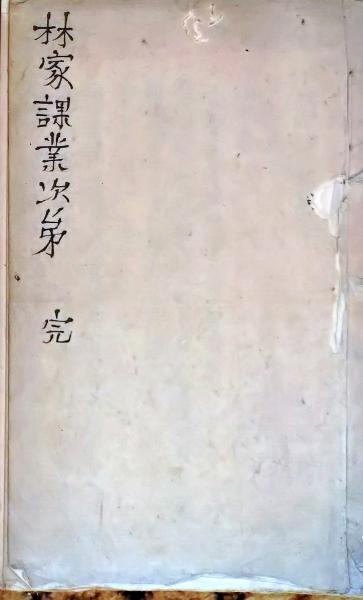 林家課業次第 完